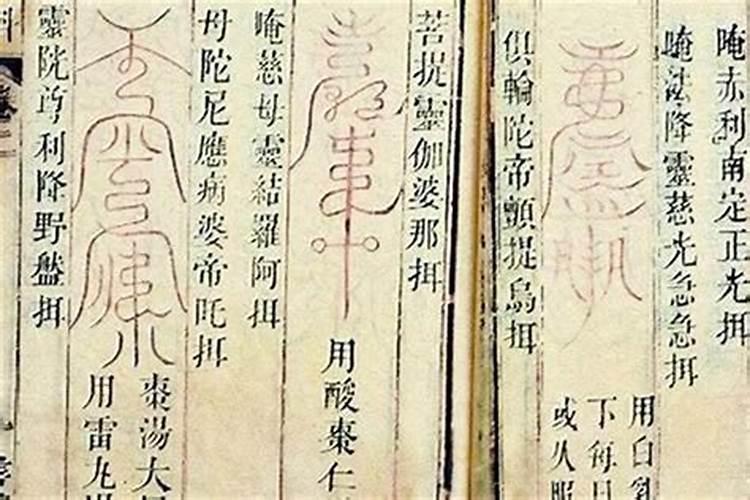 唵赤利南定正光挕
唵法降靈慈光急急挕
用白
下每日
或久服
俱輪陀帝顫提烏挕
菩提靈伽婆那挕
用酸棗仁
唵慈母靈結羅阿挕
母陀尼應病婆帝吒挕
棗湯大
用雷丸
靈陀首利降野盤挕